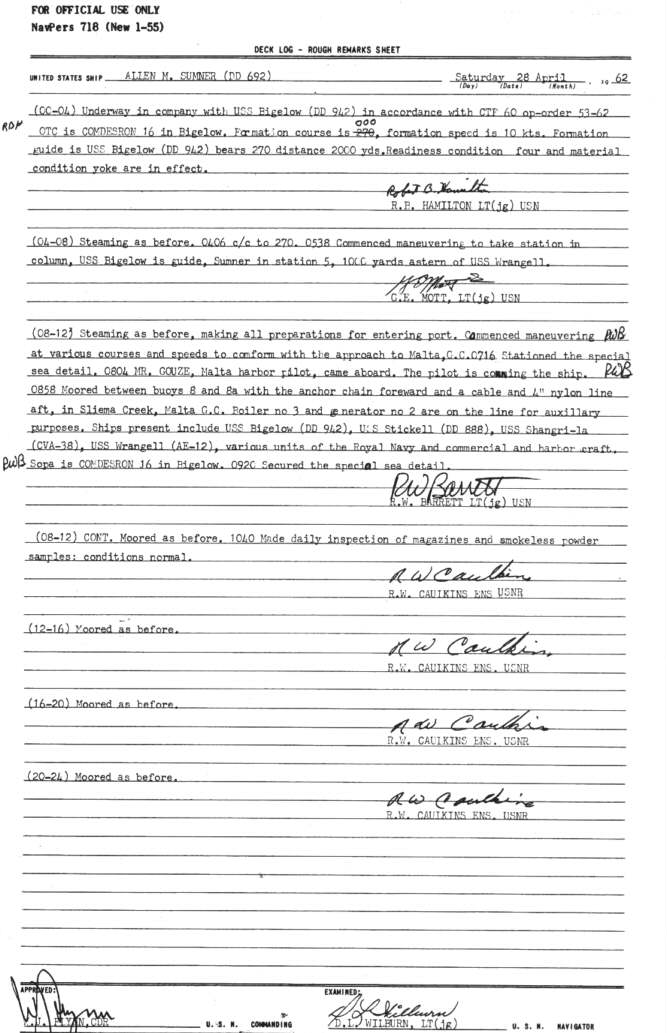 FOR OFFICIAL USE ONLY
NavPers 718 (New 1-55)
DECK LOG - ROUGH REMARKS SHEET
UNITED STATES SHIP ALLEN M. SUMNER (DD 692) Saturday 28 April , 19 62
(Day) (Date) (Month)
(00-04) Underway in company with USS Bigelow (DD 942) in accordance with CTF 60 op-order 53-62
000
OTC is COMDESRON 16 in Bigelow. Formation course is 270, formation speed is 10 kts. Formation
guide is USS Bigelow (DD 942) bears 270 distance 2000 yds.Readiness condition four and material
condition yoke are in effect.
Robert B. Hamilton
R.B. HAMILTON LT(jg) USN
(04-08) Steaming as before. 0406 c/c to 270. 0538 Commenced maneuvering to take station in
column, USS Bigelow is guide, Sumner in station 5, 1000 yards astern of USS Wrangell.
G.E. MOTT, LT(jg) USN
(08-12) Steaming as before, making all preparations for entering port. Commenced maneuvering RWB
at various courses and speeds to comform with the approach to Malta,G.C.0716 Stationed the special
sea detail. 0804 MR. GOUZE, Malta harbor pilot, came aboard. The pilot is conning the ship. RWB
0858 Moored between buoys 8 and 8a with the anchor chain foreward and a cable and 4" nylon line
aft, in Sliema Creek, Malta G.C. Boiler no 3 and generator no 2 are on the line for auxillary
purposes. Ships present include USS Bigelow (DD 942), USS Stickell (DD 888), USS Shangri-la
(CVA-38), USS Wrangell (AE-12), various units of the Royal Navy and commercial and harbor craft.
RWB Sopa is COMDESRON 16 in Bigelow. 0920 Secured the special sea detail.
RW Barrett
R.W. BARRETT LT(jg) USN
(08-12) CONT. Moored as before. 1040 Made daily inspection of magazines and smokeless powder
samples: conditions normal.
RW Caulkins
R.W. CAULKINS ENS USNR
(12-16) Moored as before.
RW Caulkins
R.W. CAULKINS ENS. USNR
(16-20) Moored as before.
RW Caulkins
R.W. CAULKINS ENS. USNR
(20-24) Moored as before.
RW Caulkins
R.W. CAULKINS ENS. USNR
APPROVED: EXAMINED:
D L Wilburn
FLYNN, CDR U. S. N. COMMANDING D.L. WILBURN, LT(jg) U. S. N. NAVIGATOR